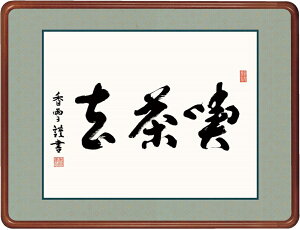 喫茶去
香雨謹書